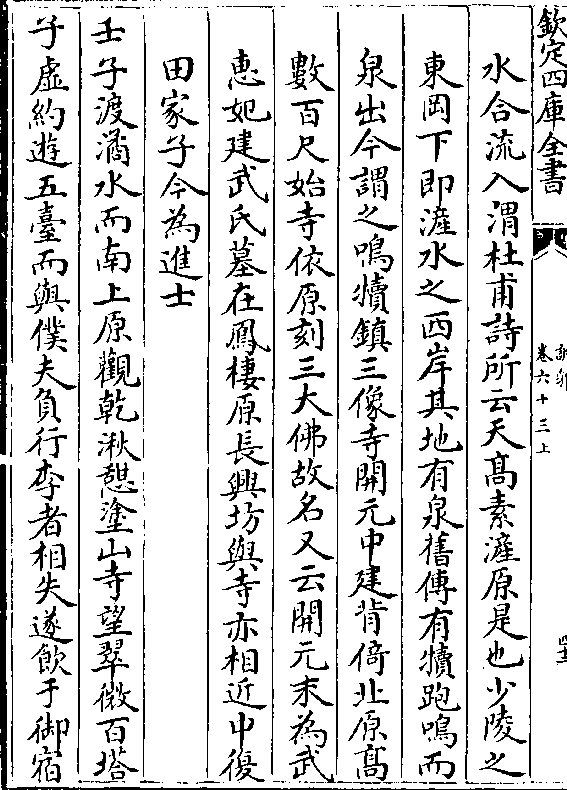 欽定四庫全書
說郛
卷六十三上
水合流入渭杜甫詩所云天髙素滻原是也少陵之
東岡下即滻水之西岸其地有泉舊傳有犢跑鳴而
泉出今謂之鳴犢鎮三像寺開元中建背倚北原髙
數百尺始寺依原刻三大佛故名又云開元末為武
惠妃建武氏墓在鳳棲原長興坊與寺亦相近中復
田家子今為進士
壬子渡潏水而南上原觀乾湫憇塗山寺望翠微百塔
子虛約遊五臺而與僕夫負行李者相失遂飲于御宿